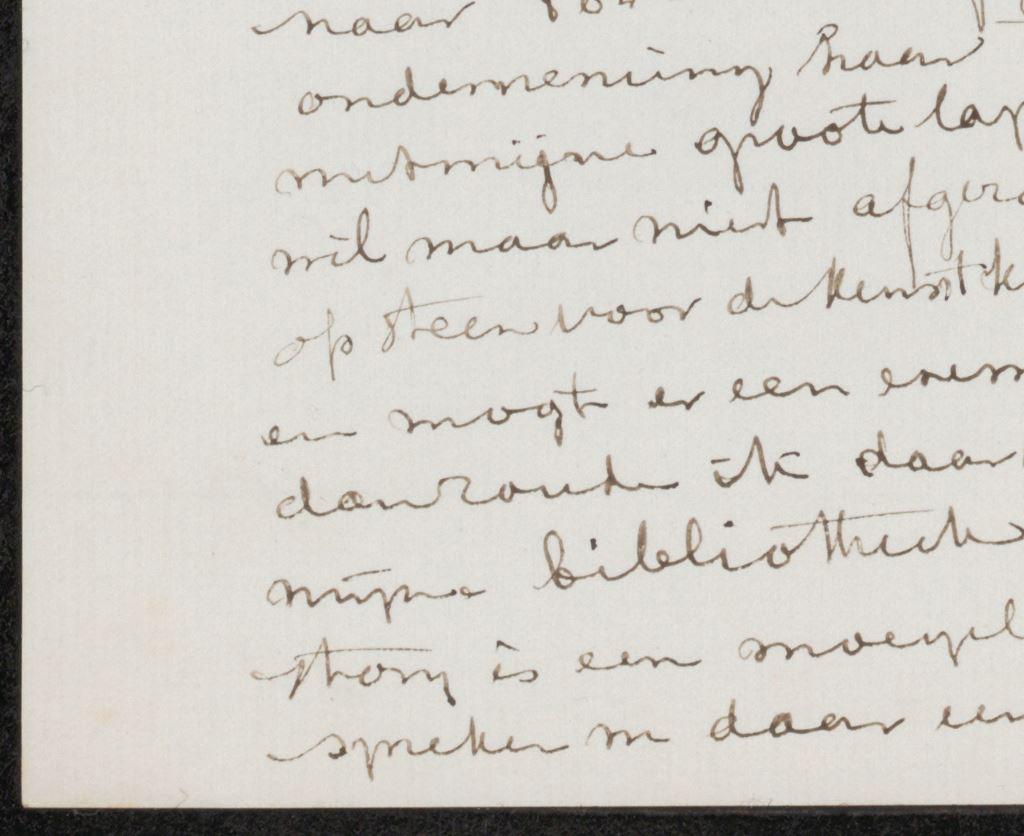 naar
onderneming haar
met mijne groote lap
wil maar niet afge
op steen voor de kunstk
en mogt er een exem
dan zoude ik daar
mijne bibliotheek
is een moeyel
spreken daar een